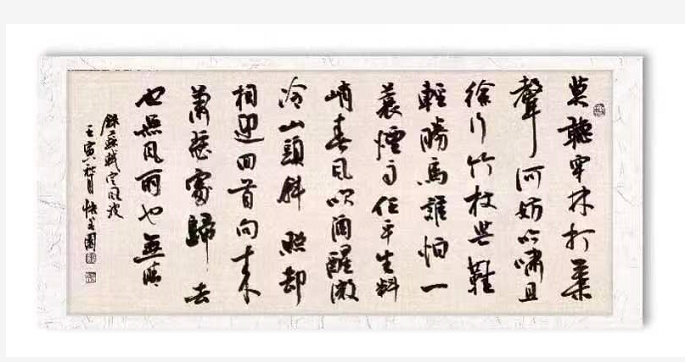 莫聽穿林打葉
聲何妨吟嘯且
徐行竹杖芒鞋
輕勝馬誰怕一
蓑煙雨任平生料
峭春風吹酒醒微
冷山頭斜照却
相迎回首向来
蕭瑟處歸去
也無風雨也無晴
錄蘇軾定風波
壬寅秋月